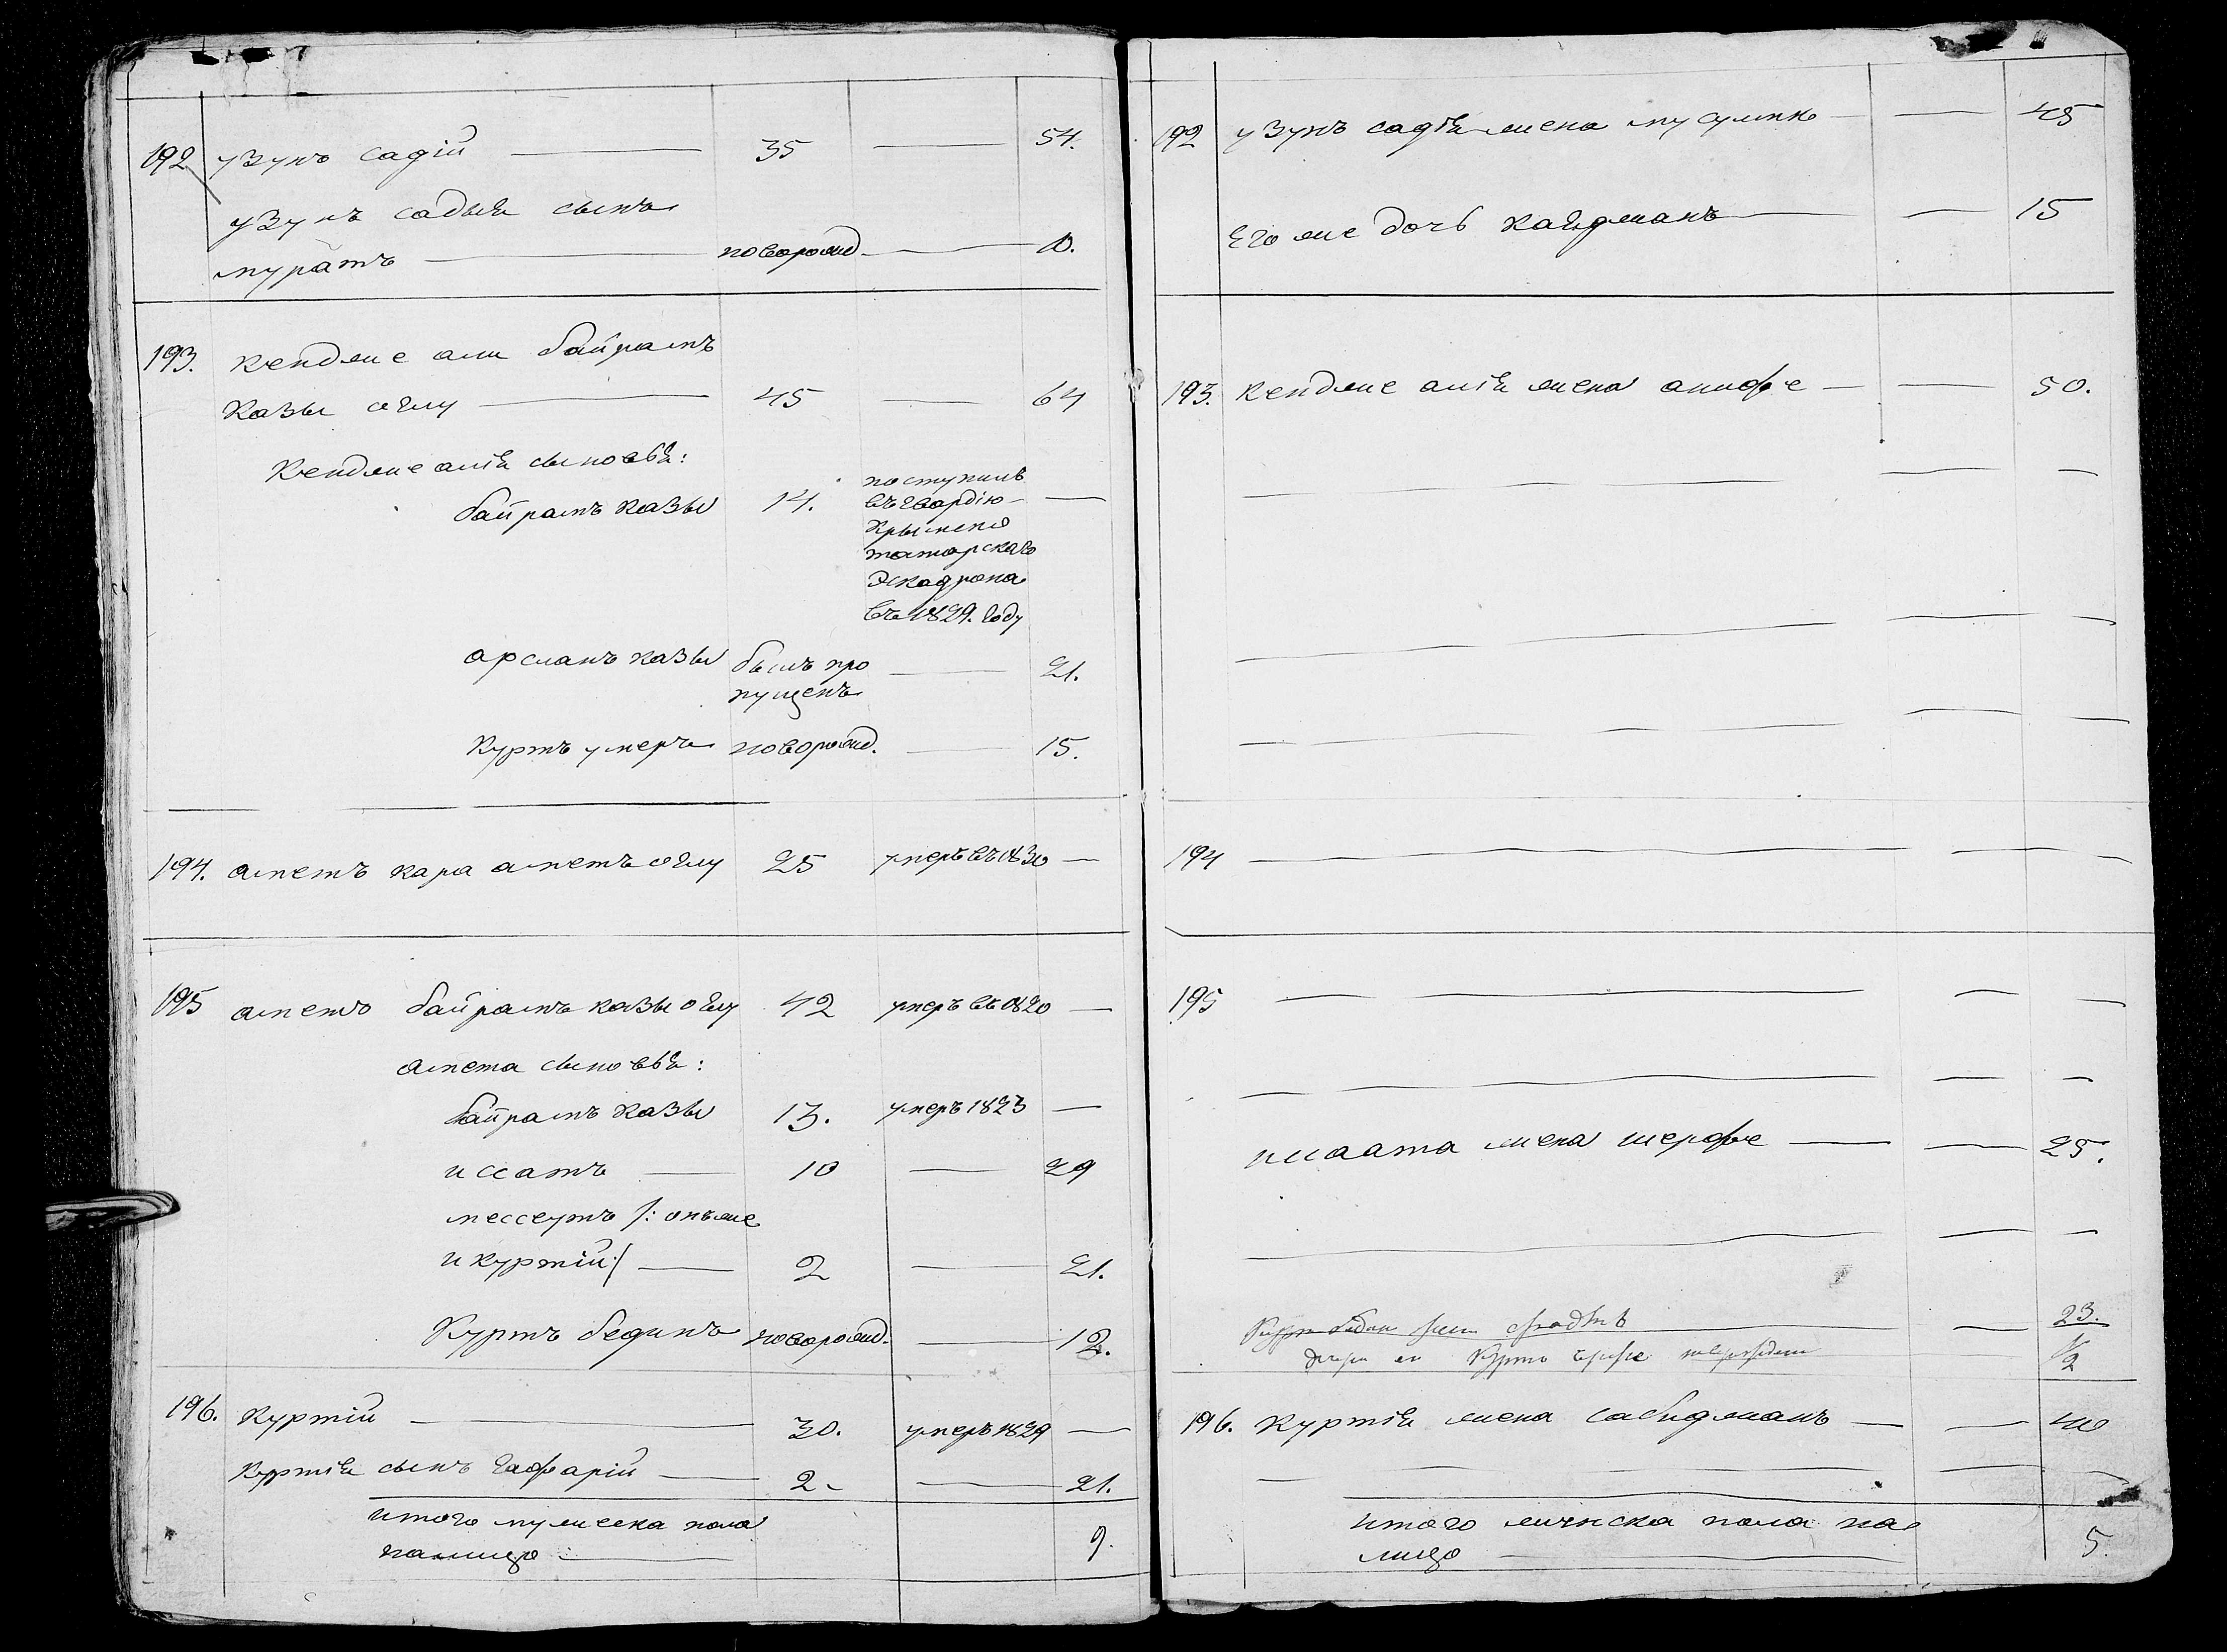 192 узунъ садій — 35 — 54.
узунъ садыя сынъ
муратъ — новорожд. — 10.
193. Кендже али байрамъ
казы оглу — 45 — 64
Кендже алія сыновья:
байрамъ казы 14. поступилъ —
въ гвардію
Крымско
татарскаго
Эскадрона
въ 1829. году
арсланъ казы былъ про — 21.
пущенъ
Куртъ умеръ новорожд. — 15.
194. аметъ кара аметъ оглу 25 умеръ въ 1830 —
195 аметъ байрамъ казы оглу 42 умеръ въ 1820 —
амета сыновья:
байрамъ казы 13. умеръ 1823 —
иссатъ — 10 — 29
мессеутъ /: онъ же
и куртій :/ — 2 — 21.
Куртъ бединъ новорожд. — 12.
196. Куртій — 30. умеръ 1829 —
Куртія сынъ гафарій — 2 — 21.
итого мужеска пола
налицо — 9.
192 узунъ садія жена — — 45
Его же дочь — — 15
193. Кендже алія жена анифе — — 50.
194 — — —
195 — — —
иссата жена шерфе — — 25.
— 23.
Курто 1/2
196. Куртія жена — — 40
итого женска пола на
лицо — 5.